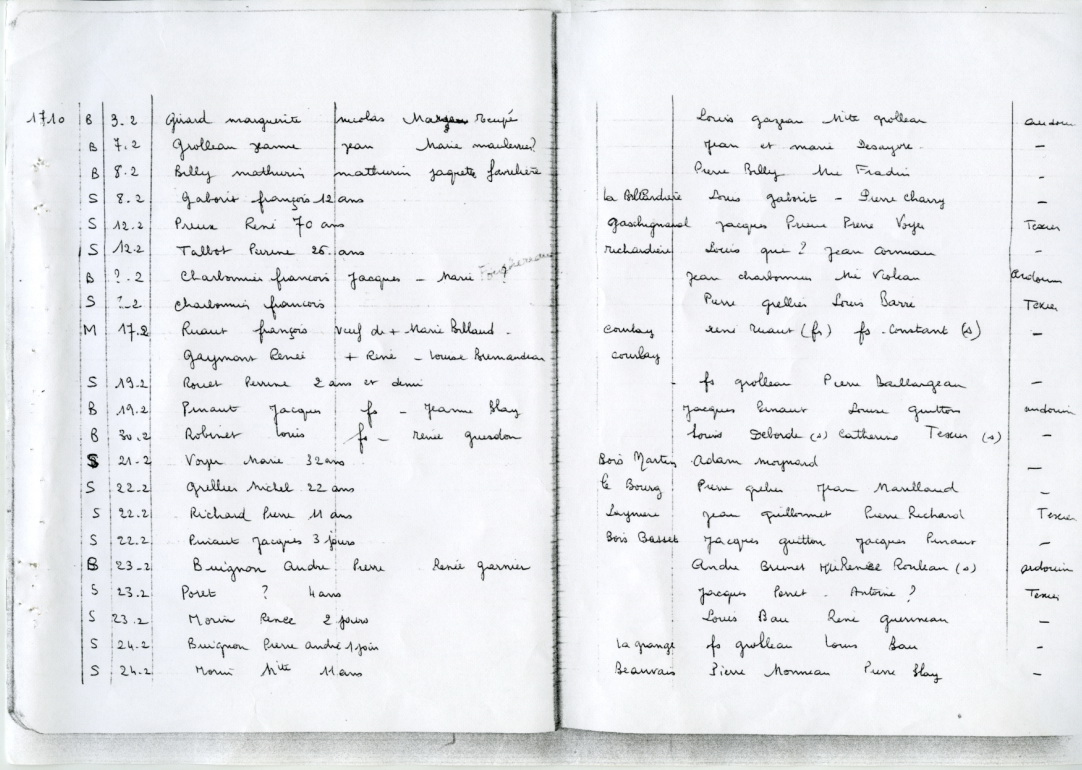 1710 B 3.2 Girard marguerite nicolas Louis gazeau Mtte grolleau
B 7.2 Grolleau Jeanne Jean Marie Jean et marie Desayvre -
B 8.2 Billy mathurin mathurin jaquette Pierre Billy Mie Fradin -
S 8.2 Gaborit françois 12 ans Louis gaborit - Pierre Charry -
S 12.2 Preux René 70 ans Jacques Pierre Voyer Texier
S 12.2 Talbot Perrine 26 ans richardière Louis que ? Jean -
B ?.2 Charbonnier francois Jacques - Marie ? Jean charbonnier Mie Violeau ardouin
S ?.2 Charbonnier francois Pierre grellier Louis Barré Texier
M 17.2 Ruaut françois Veuf de + Marie Billaud - courlay rené ruaut (fr) fs - Constant (s) -
Gaymont Renée + René - Louise courlay
S 19.2 Rouet Perrine 2 ans et demi - fs grolleau Pierre Baillargeau -
B 19.2 Pinaut Jacques fs - Jeanne Blay Jacques Pinaut Louise guitton ardouin
B 30.2 Robinet Louis fs - renée guesdon Louis Deborde (s) Catherine Texier (s) -
S 21.2 Voyer Marie 32 ans Bois Martin Adam moynard -
S 22.2 Grellier Michel 22 ans le Bourg Pierre grelier Jean Marillaud -
S 22.2 Richard Pierre 11 ans Jean guillonnet Pierre Richard Texier
S 22.2 Pinaut Jacques 3 jours Bois Basset Jacques guitton Jacques Pinaut -
B 23.2 Buignon Andre Pierre Renée garnier Andre Brunet Rouleau (s) ardouin
S 23.2 Poret ? 4 ans Jacques Perret - Antoine ? Texier
S 23.2 Morin Renée 2 jours Louis Bau René guerineau -
S 24.2 Buignon Pierre andré 1 join La grange fs grolleau Louis Bau -
S 24.2 Morin Mtte 11 ans Beauvais Pierre Monneau Pierre Blay -